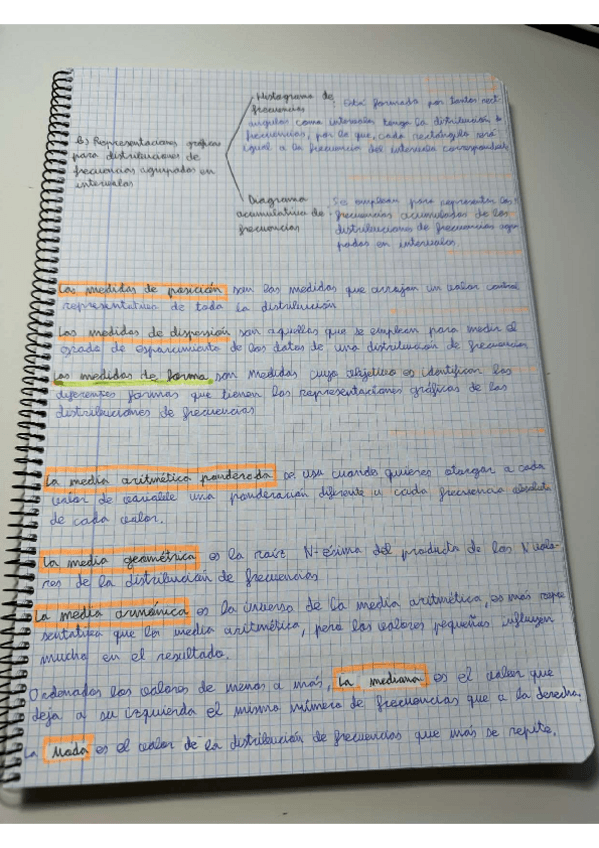 Histograma de frecuencias
Está formado por tantos rectángulos como intervalos tenga la distribución de
frecuencias, por lo que, cada rectángulo será
igual a la frecuencia del intervalo correspondiente
b) Representaciones gráficas
para distribuciones de
frecuencias agrupadas en
intervalos
Diagrama
acumulativo de
frecuencias
Se emplean para representar las
frecuencias acumuladas de las
distribuciones de frecuencias agru-
padas en intervalos.
Las medidas de posición son las medidas que arrojan un valor central
representativo de toda la distribución
Las medidas de dispersión son aquellas que se emplean para medir el
grado de esparcimiento de los datos de una distribución de frecuencias
Las medidas de forma son medidas cuyo objetivo es identificar las
diferentes formas que tienen las representaciones gráficas de las
distribuciones de frecuencias
La media aritmética ponderada se usa cuando quieres otorgar a cada
valor de variable una ponderación diferente a cada frecuencia absoluta
de cada valor.
La media geométrica es la raíz N-ésima del producto de los N valo-
res de la distribución de frecuencias
La media armónica es la inversa de la media aritmética, es más repre
sentativa que la media aritmética, pero los valores pequeños influyen
mucho en el resultado.
Ordenados los valores de menos a más, la mediana es el valor que
deja a su izquierda el mismo número de frecuencias que a la derecha.
La Moda es el valor de la distribución de frecuencias que más se repite.